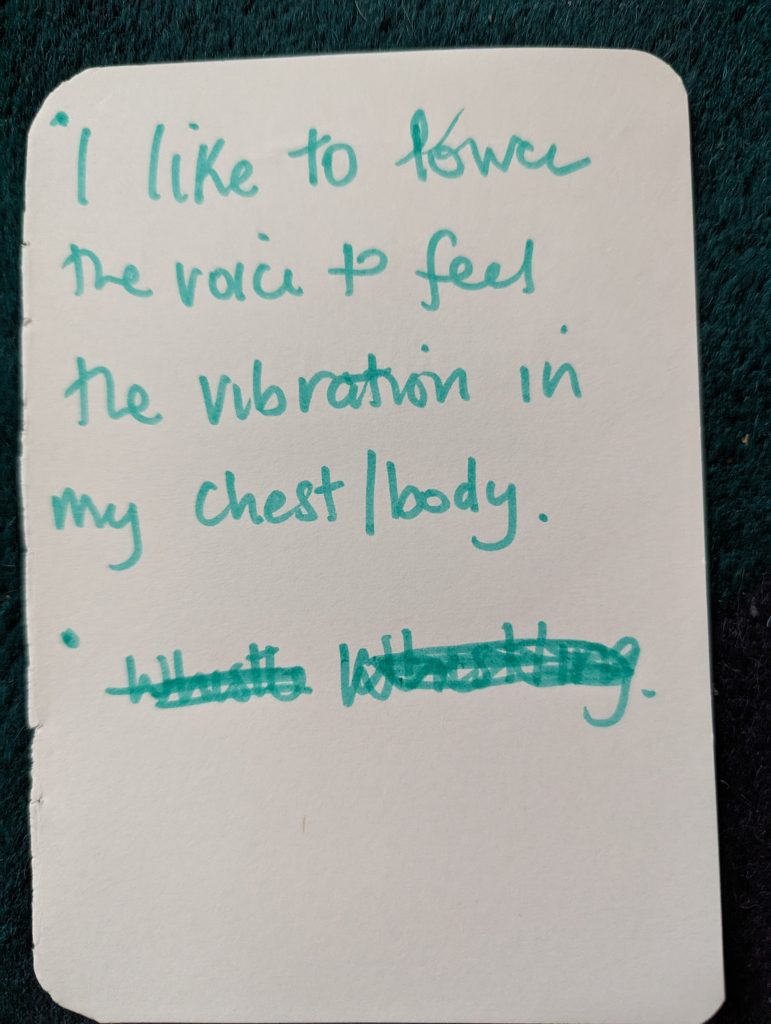 • I like to lower
the voice to feel
the vibration in
my chest/body.
•